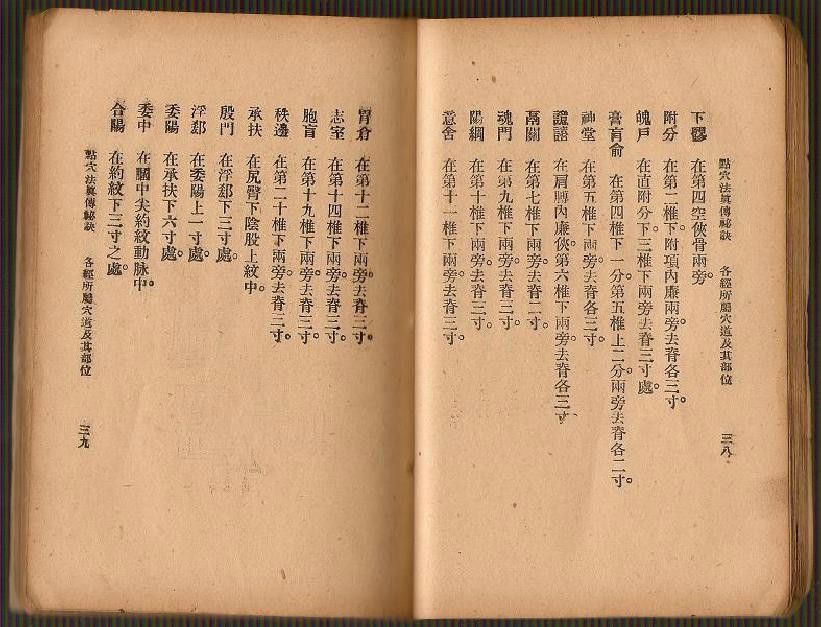 點穴法眞傳祕訣 各經所屬穴道及其部位 三八
下髎 在第四空俠骨兩旁。
附分 在第二椎下附項內廉兩旁。去脊各三寸。
魄戶 在直附分下。三椎下兩旁去脊三寸處。
膏肓俞 在第四椎下一分。第五椎上二分。兩旁去脊各二寸。
神堂 在第五椎下兩旁。去脊各三寸。
譩譆 在肩膊內廉俠第六椎下兩旁去脊各三寸。
鬲關 在第七椎下兩旁。去脊二寸。
魂門 在第九椎下兩旁。去脊三寸。
陽綱 在第十椎下兩旁。去脊三寸。
意舍 在第十一椎下兩旁。去脊三寸。
胃倉 在第十二椎下兩旁。去脊三寸。
志室 在第十四椎下兩旁。去脊三寸。
胞肓 在第十九椎下兩旁。去脊三寸。
秩邊 在第二十椎下兩旁。去脊三寸。
承扶 在尻臀下陰股上紋中。
殷門 在浮郄下三寸處。
浮郄 在委陽上一寸處。
委陽 在承扶下六寸處。
委中 在膕中尖約紋動脉中。
合陽 在約紋下三寸之處。
點穴法眞傳祕訣 各經所屬穴道及其部位 三九